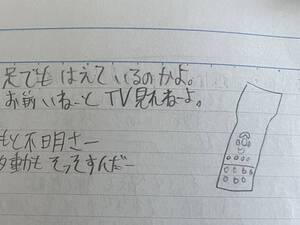 足でも はえているのかよ。
お前いねーと TV見れねーよ。
もと不明さー
動も そっそすんだー